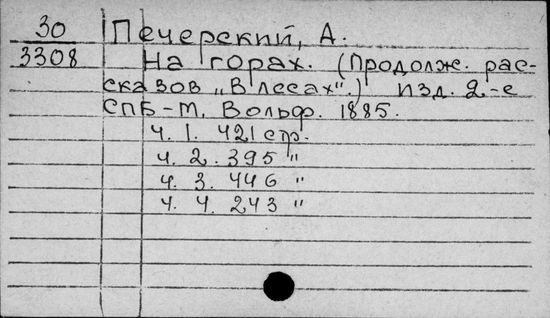 30 Печерский, А.
3308 На горах. (Продолж. рас-
сказов „В лесах".) изд. 2-е
СПБ-М, Вольф. 1885.
ч. 1. 421 стр.
ч. 2. 395 "
ч. 3. 446 "
ч. 4. 243 "